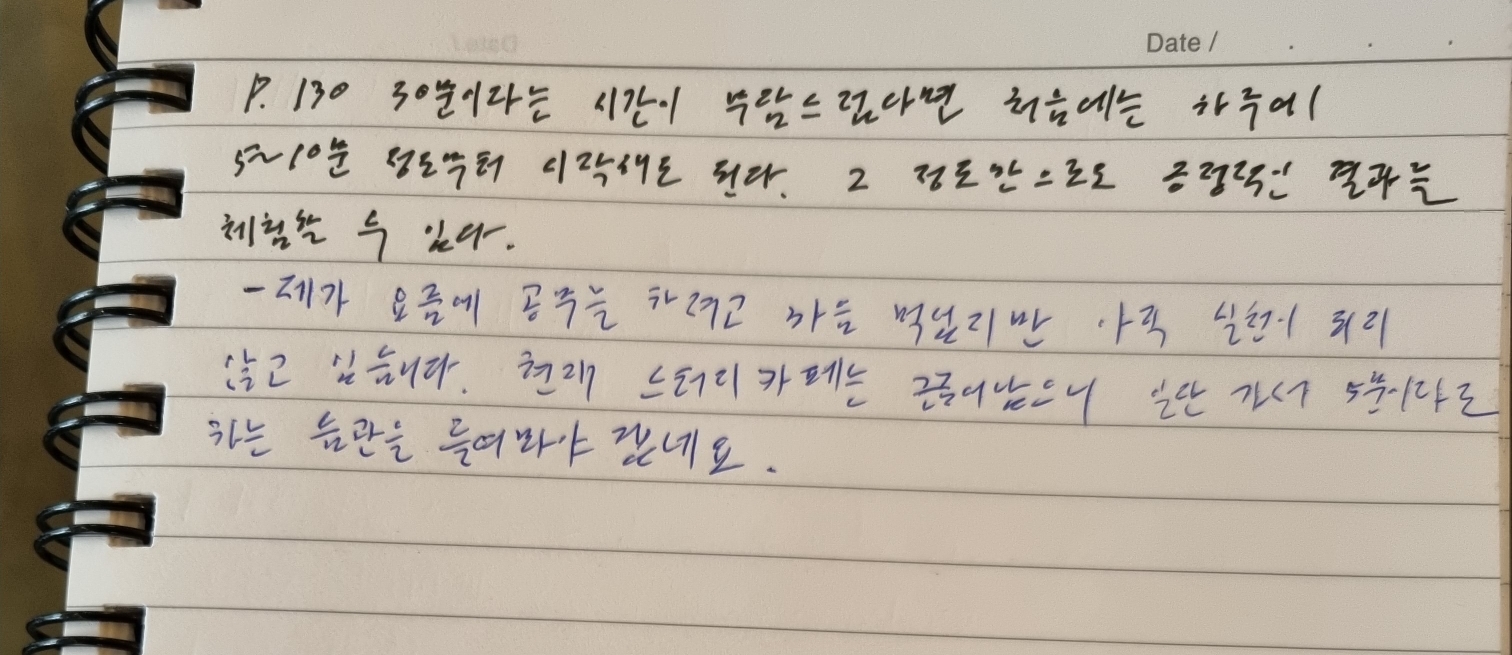 Date /
P. 130 30분이라는 시간이 부담스럽다면 처음에는 하루에
5~10분 정도부터 시작해도 된다. 그 정도만으로도 긍정적인 결과를
체험할 수 있다.
- 제가 요즘에 공부를 하려고 마음 먹었지만 아직 실천이 되지
않고 있습니다. 현재 스터디 카페는 끊어놨으니 일단 가서 5분이라도
하는 습관을 들여봐야 겠네요.